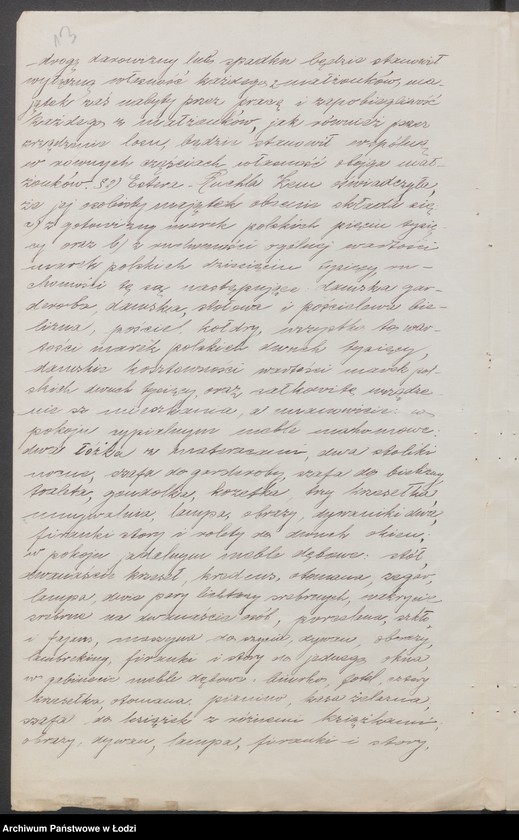 13
drogą darowizny lub spadku będzie stanowił
wyłączną własność każdego z małżonków, ma-
jątek zaś nabyty przez pracę i zapobiegliwość
każdego z małżonków, jak również przez
urządzenie losu, będzie stanowił wspólną
w równych częściach własność obojga mał-
żonków. § 2) Estera-Ruchla oświadczyła,
że jej osobisty majątek obecnie składa się:
a) z gotowizny marek polskich pięciu tysię-
cy oraz b) z ruchomości ogólnej wartości
marek polskich dziesięciu tysięcy, ru-
chomości te są następujące: damska gar-
deroba, damska, stołowa i pościelowa bie-
lizna, pościel, kołdry, wszystko to war-
tości marek polskich dwóch tysięcy,
damskie kosztowności wartości marek pol-
skich dwóch tysięcy oraz całkowite urządze-
nie mieszkania, a mianowicie: w
pokoju sypialnym meble mahoniowe:
dwa łóżka z materacami, dwa stoliki
nocne, szafa do garderoby, szafa do bielizny,
toaleta, gondolka, kozetka, trzy krzesełka,
umywalnia, lampa, obrazy, dywaniki dwa,
firanki story i rolety do dwóch okien;
w pokoju jadalnym meble dębowe: stół,
dwanaście krzeseł, kredens, otomana, zegar,
lampa, dwie pary lichtarzy srebrnych, nakrycie
srebrne na dwanaście osób, porcelana, szkło
i fajans, maszyna do szycia, dywan, obrazy,
lambrekiny, firanki i story do jednego okna,
w gabinecie meble dębowe: biurko, fotel, cztery
krzesełka, otomana, pianino, kasa żelazna,
szafa do książek z różnemi książkami,
obrazy, dywan, lampa, firanki i story,
Archiwum Państwowe w Łodzi